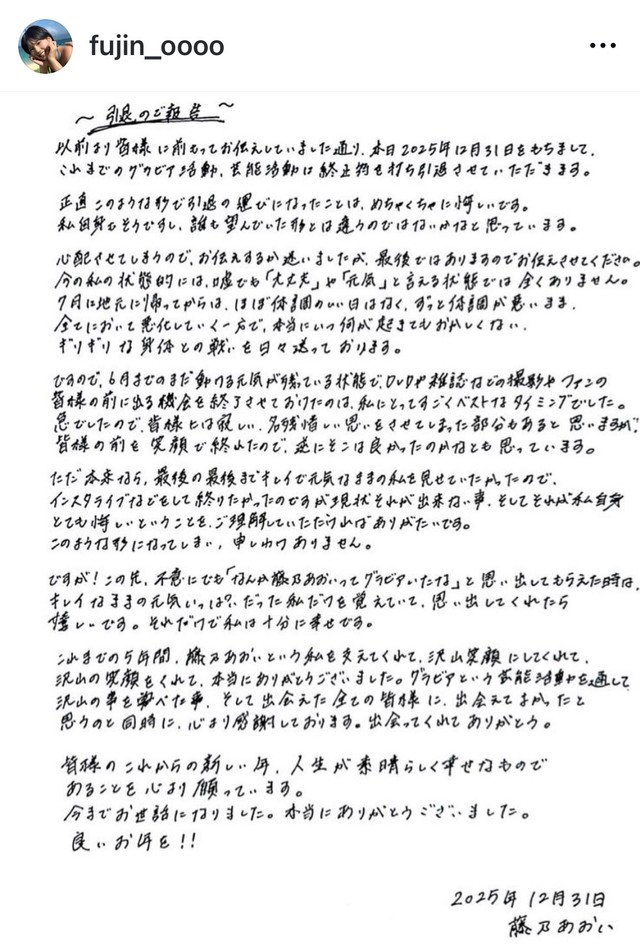 fujin_oooo
～引退のご報告～
以前より皆様に前もってお伝えしていました通り、本日2025年12月31日をもちまして、
これまでのグラビア活動、芸能活動に終止符を打ち引退させていただきます。
正直このような形で引退の運びになったことは、めちゃくちゃに悔しいです。
私自身もそうですし、誰も望んでいた形とは違うのではないかなと思っています。
心配させてしまうので、お伝えするか迷いましたが、最後ではありますのでお伝えさせてください。
今の私の状態的には、嘘でも「大丈夫」や「元気」と言える状態では全くありません。
7月に地元に帰ってからは、ほぼ体調のいい日はなく、ずっと体調が悪いまま、
全てにおいて悪化していく一方で、本当にいつ何が起きてもおかしくない、
ギリギリな身体との戦いを日々送っております。
ですので、6月までのまだ動ける元気が残っている状態で、DVDや雑誌などの撮影やファンの
皆様の前に出る機会を終了させておけたのは、私にとってすごくベストなタイミングでした。
急でしたので、皆様には寂しい、名残惜しい思いをさせてしまった部分もあると思いますが、
皆様の前を笑顔で終れたので、逆にそこは良かったのかなとも思っています。
ただ本来なら、最後の最後までキレイで元気なままの私を見せていたかったので、
インスタライブなどをして終りたかったのですが現状それが出来ない事、そしてそれが私自身
とても悔しいということを、ご理解していただければありがたいです。
このような形になってしまい、申しわけありません。
ですが！この先、不意にでも「なんか藤乃あおいってグラビアいたな」と思い出してもらえた時は、
キレイなままの元気いっぱい？だった私だけを覚えていて、思い出してくれたら
嬉しいです。それだけで私は十分に幸せです。
これまでの5年間、藤乃あおいという私を支えてくれて、沢山笑顔にしてくれて、
沢山の笑顔をくれて、本当にありがとうございました。グラビアという芸能活動を通して
沢山の事を学べた事、そして出会えた全ての皆様に、出会えてよかったと
思うのと同時に、心より感謝しております。出会ってくれてありがとう。
皆様のこれからの新しい年、人生が素晴らしく幸せなもので
あることを心より願っています。
今までお世話になりました。本当にありがとうございました。
良いお年を！！
2025年12月31日
藤乃あおい